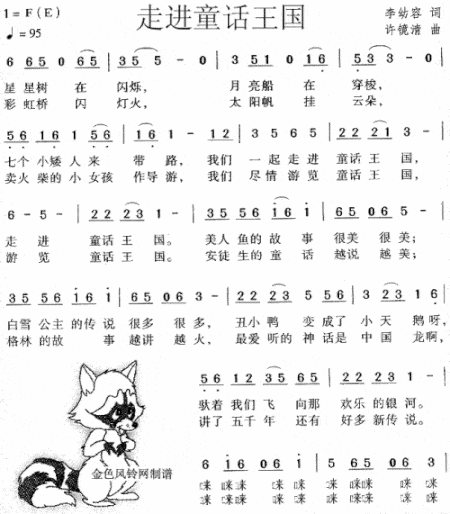 走进童话王国
1=F(E)
♩=95
李幼容 词
许镜清 曲
6 65 0 65 (35) 35 5 - 0 3 51 0 16 (53) 3 - 0
星星树 在 闪烁， 月亮船 在 穿梭，
彩虹桥 闪 灯火， 太阳帆 挂 云朵，
56 16 1 56 16 1 - 12 3 35 5 5 22 23 1
七个小矮人来 带 路， 我们 一起走进 童话王 国，
卖火柴的小女孩 作导游， 我们 尽情游览 童话王 国，
6 - 5 - 22 23 1 - 35 56 i6 1 65 06 5 -
走 进 童话王 国。 美人鱼的故 事 很美 很美；
游 览 童话王 国。 安徒生的童 话 越说 越美；
35 56 16 1 35 06 3 - 35 56 5 3 23 16
白雪公主的传说 很多 很多， 丑小鸭 变成了小天 鹅呀，
格林的故 事 越讲 越火， 最爱听的神话是中国 龙啊，
56 12 35 65 22 23 1 -
驮着我们飞 向那 欢乐的银河。
讲了五千年 还有 好多新传说。
金色风铃网制谱